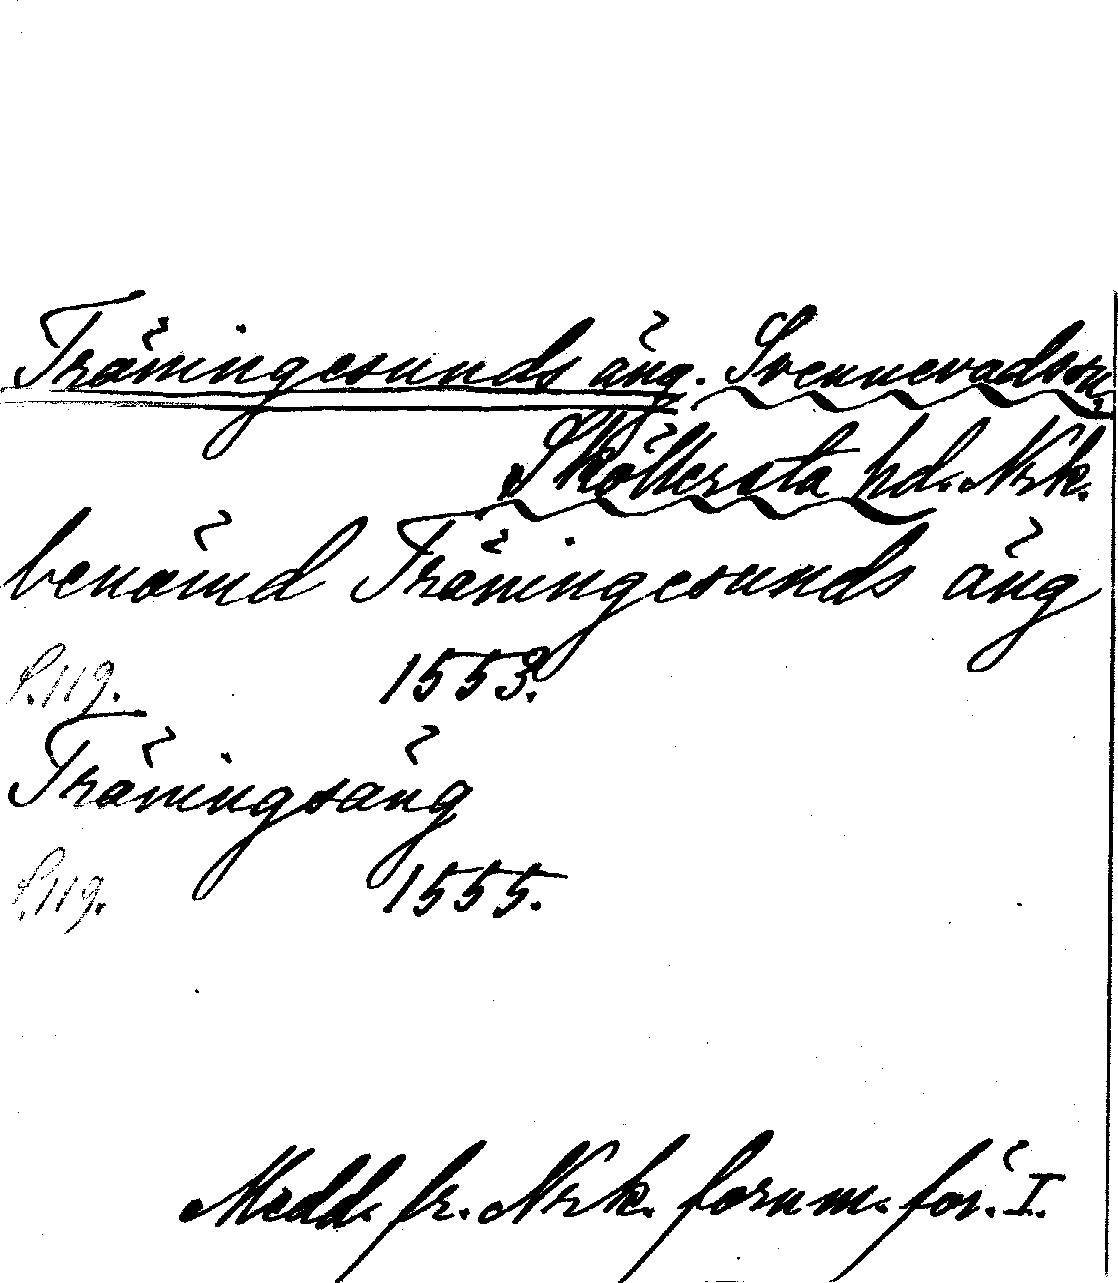 Träningesunds äng. Svennevads sn,
Sköllersta hd. Nrk.
benämd Träningesunds äng
S. 119. 1553.
Träningsäng
S. 119. 1555.
Medd. fr. Nrk. fornm. för. I.